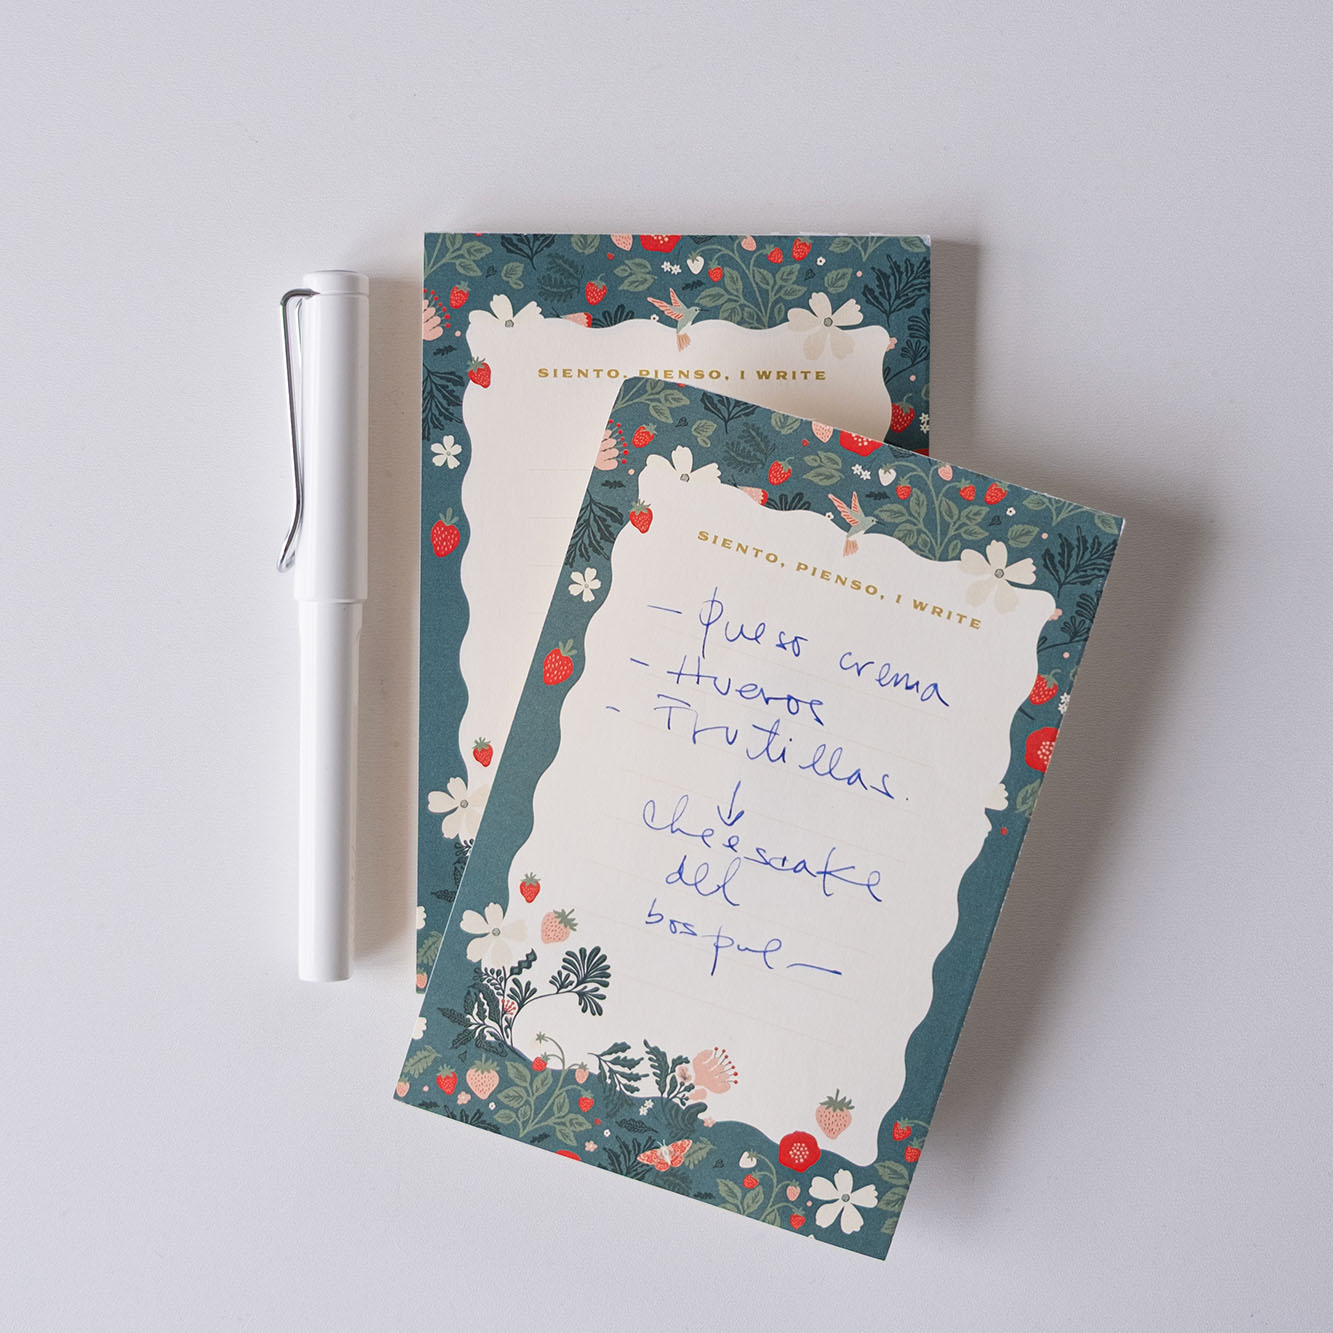 SIENTO, PIENSO, I WRITE
SIENTO, PIENSO, I WRITE
- Queso crema
- Huevos
- Frutillas.
↓
cheescake
del
bosque